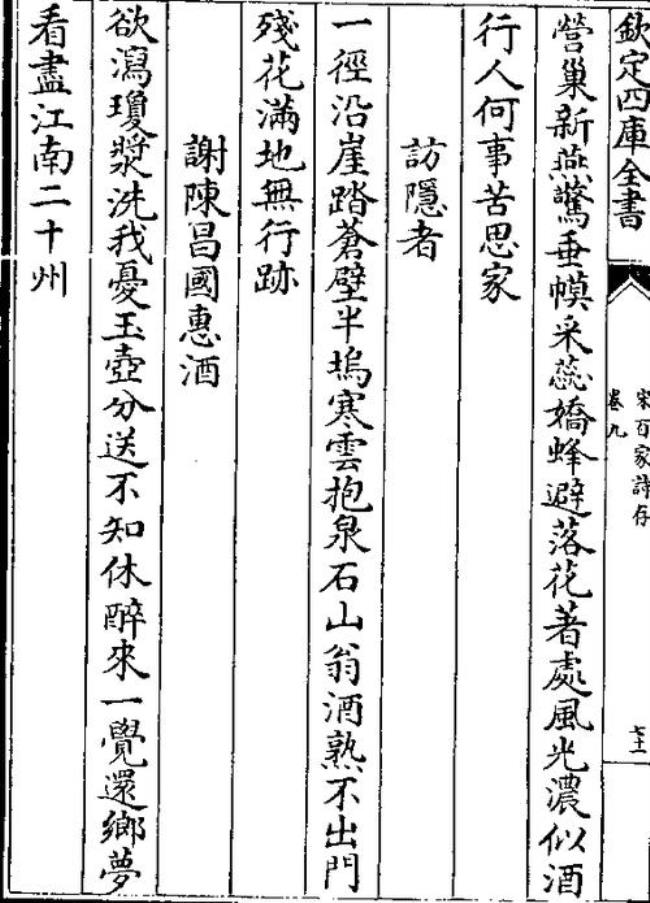 欽定四庫全書
宋百家詩存
卷九
七十一
營巢新燕驚垂幙采蕊嬌蜂避落花著處風光濃似酒
行人何事苦思家
訪隱者
一徑沿崖踏蒼壁半塢寒雲抱泉石山翁酒熟不出門
殘花滿地無行跡
謝陳昌國惠酒
欲瀉瓊漿洗我憂玉壺分送不知休醉來一覺還鄉夢
看盡江南二十州